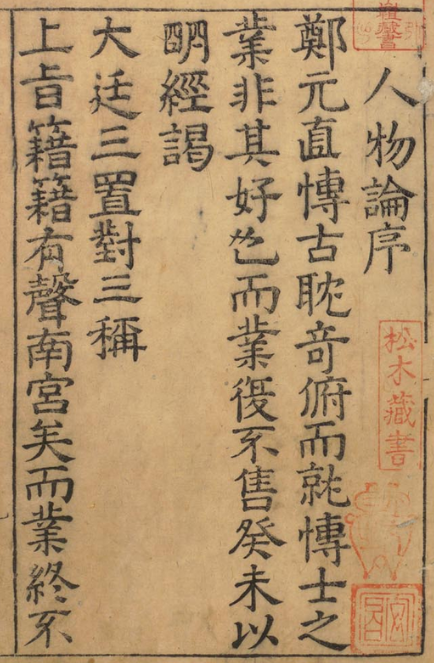 人物論序
鄭元直愽古耽竒俯而就愽士之
業非其好也而業復不售癸未以
眀經謁
大廷三置對三稱
上㫖籍籍有聲南宮矣而業終不
松木藏書